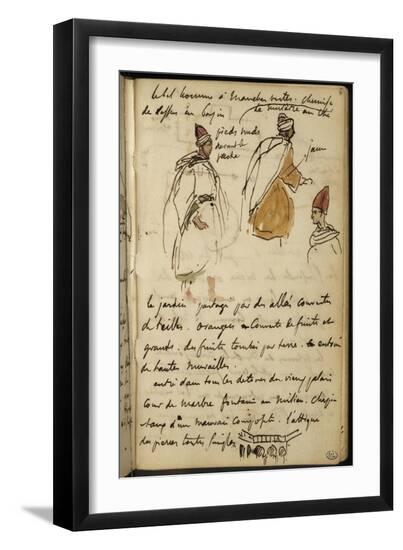 le bel homme à manches vertes. chemise
de dessus en basin
le mulâtre au thé
pieds nuds
devant le
pacha
jaune
le jardin partagé par des allées couvertes
de treilles. orangers couverts de fruits et
grands. des fruits tombés par terre. entouré
de hautes murailles.
entré dans tous les détours du vieux palais
cour de marbre fontaine au milieu. chapit
d'un mauvais composite. l'attique
des pierres toutes simples